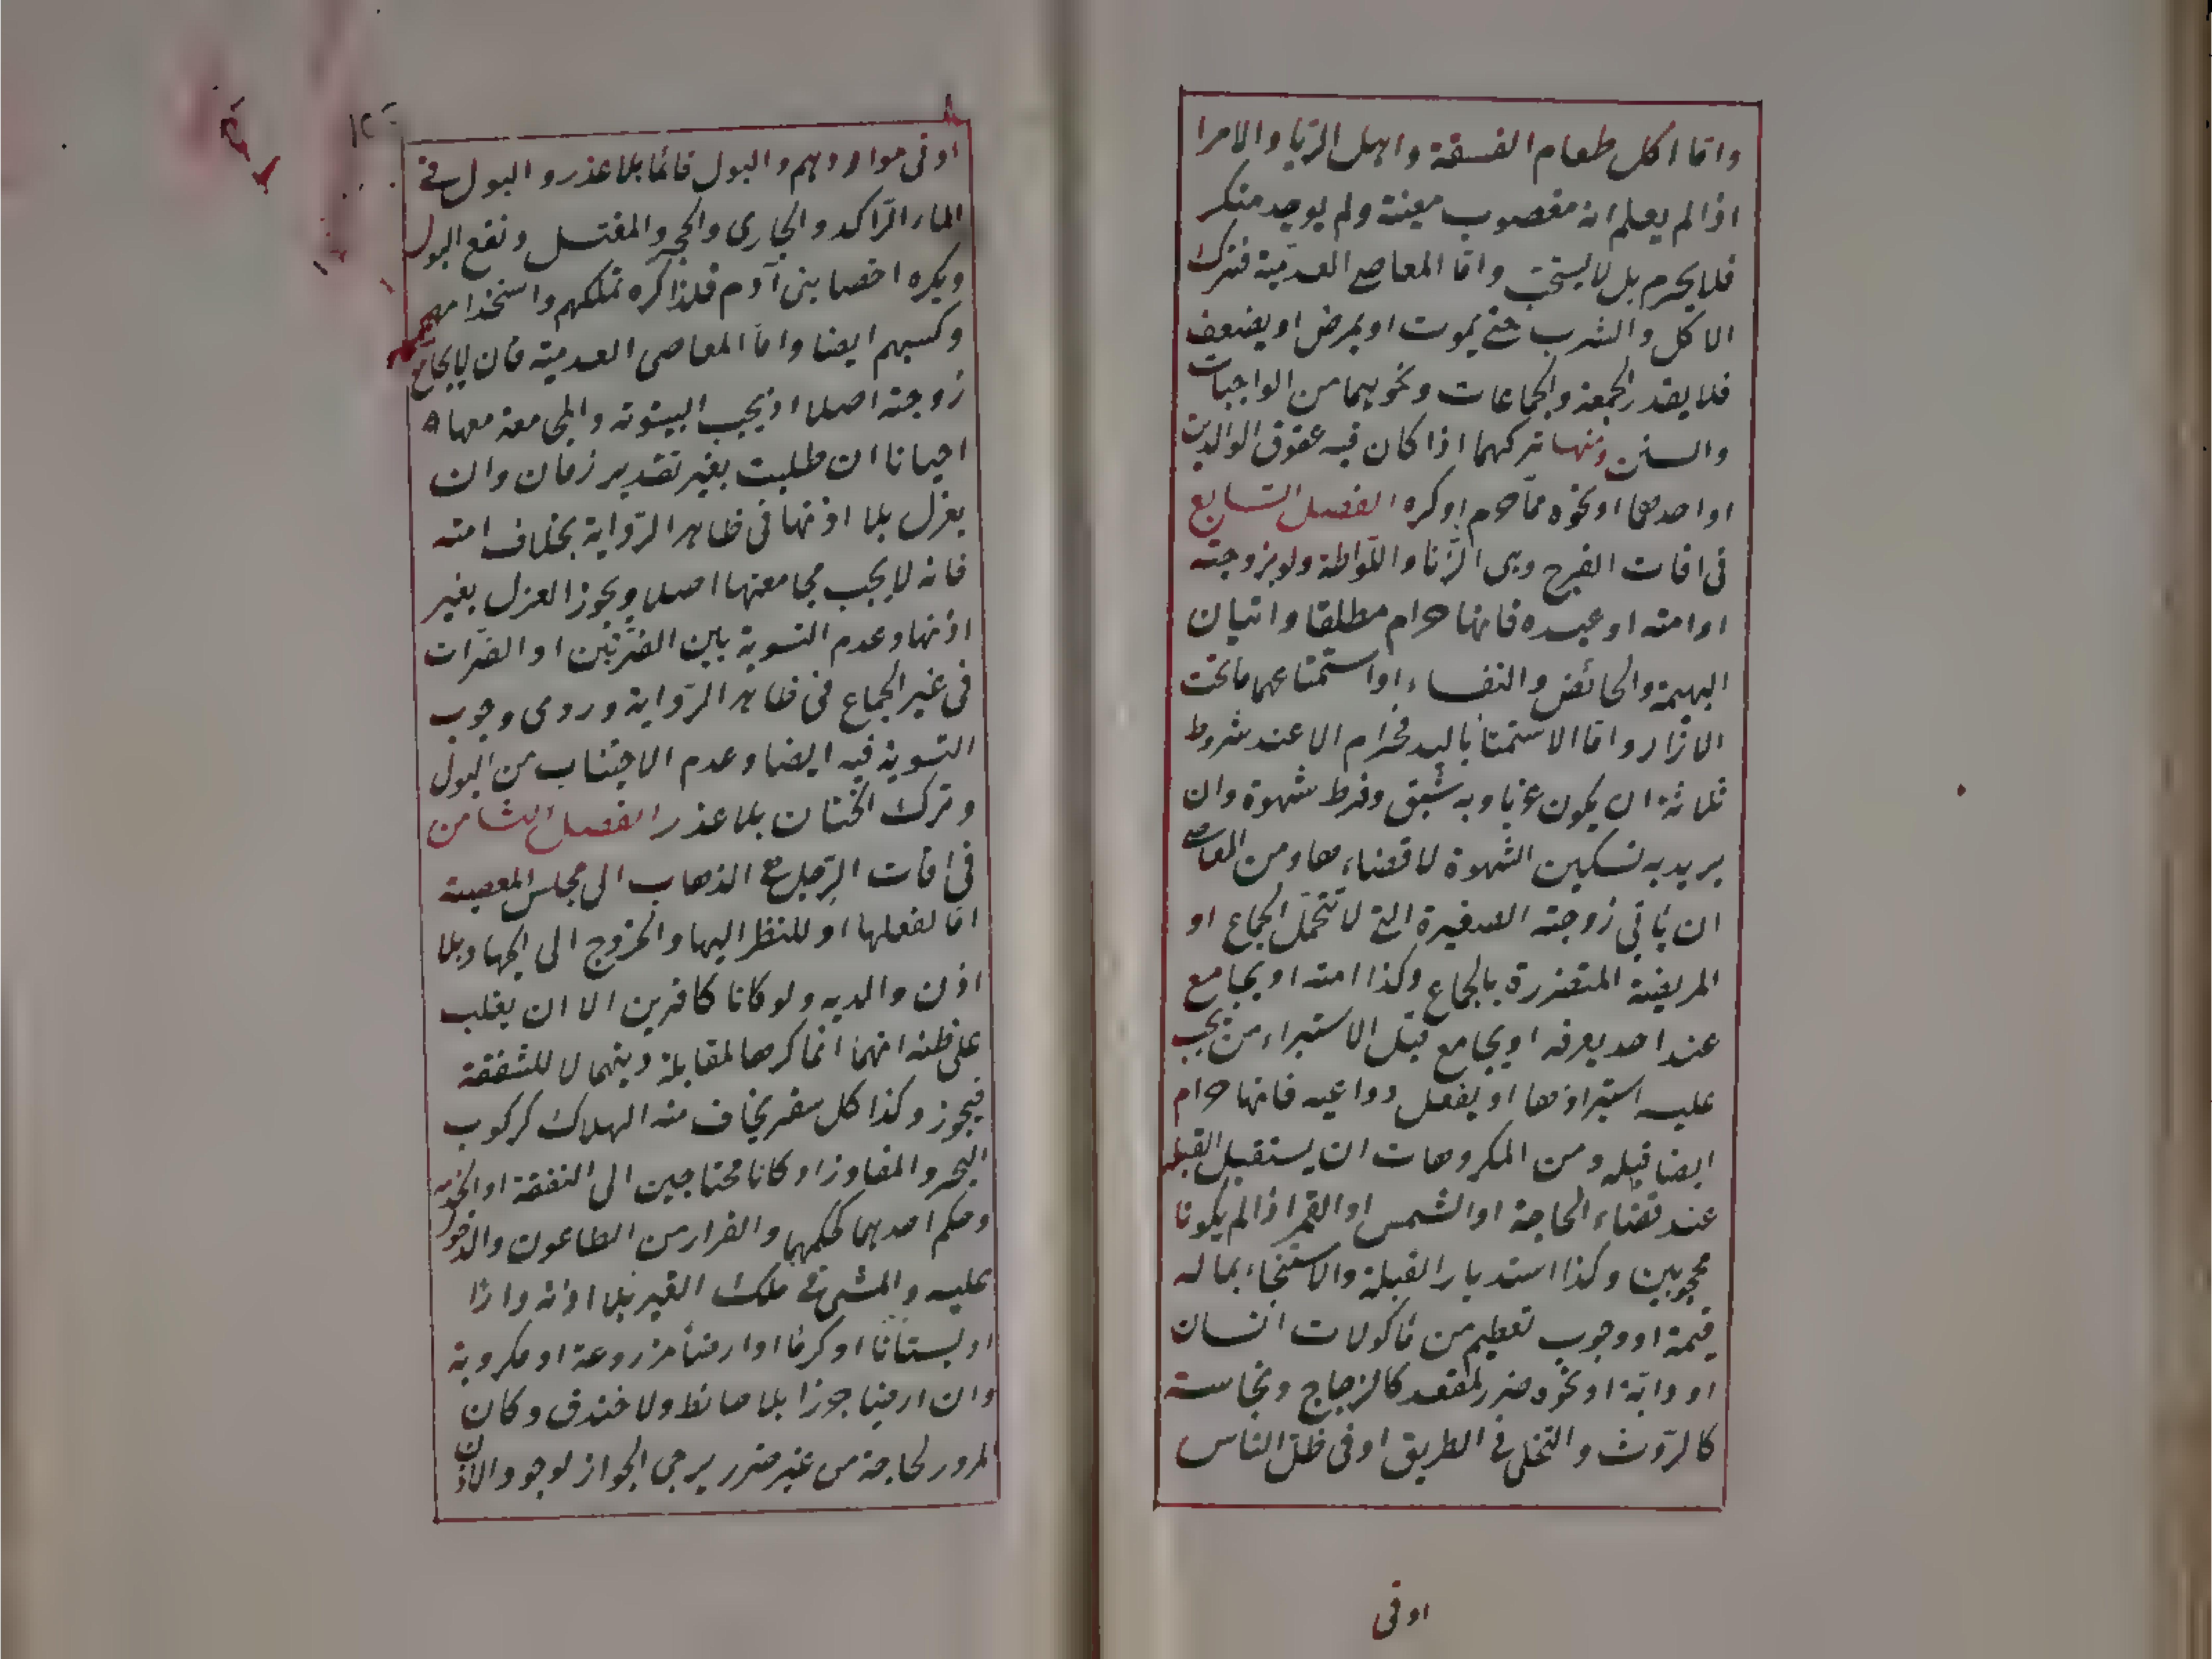 واما اكل طعام الفسقة واهل الربا والامرا
اذا لم يعلم انه مغصوب معينة ولم يوجد منكر
فلا يحرم بل لا يستحب واما المعاصى العدمية فترك
الاكل والشرب حتى يموت او يمرض او يضعف
فلا يقدر الجمعة والجماعات ونحوهما من الواجبات
والسنن ومنها تركهما اذا كان فيه عقوق الوالدين
او احدهما او نحوه مما حرم او كره الفصل السابع
فى افات الفرج وهى الزنا واللواطة ولو بزوجته
او امته او عبده فانها حرام مطلقا واتيان
البهيمة والحائض والنفساء او استمتاعهما ما تحت
الازار واما الاستمنا باليد فحرام الا عند شروط
ثلاثة ان يكون عزبا وبه شبق وفرط شهوة وان
يريد به تسكين الشهوة لا قضاءها ومن المعاصى
ان يأتى زوجته الصغيرة التى لا تتحمل الجماع او
المريضة المتضررة بالجماع وكذا امته او يجامع
عند احد يعرفه او يجامع قبل الاستبراء من يجب
عليه استبراؤها او يفعل دواعيه فانها حرام
ايضا قبله ومن المكروهات ان يستقبل القبلة
عند قضاء الحاجة او الشمس او القمر اذا لم يكونا
محجوبين وكذا استدبار القبلة والاستنجاء بما له
قيمة او وجوب تعظيم من مأكولات انسان
او دابة او نحوه ضرر لمقعد كالزجاج ونجاسة
كالروث والتخلى فى الطريق او فى ظل الناس
او فى
او فى مواردهم والبول قائما بلا عذر والبول فى
الماء الراكد والجارى والحجر والمغتسل ونقع البول
ويكره اخصا بنى آدم فلذا كره تملكهم واستخدامهم
وكسبهم ايضا واما المعاصى العدمية فان لا يجامع
زوجته اصلا اذ يجب البيتوته والمجامعة معها
احيانا ان طلبت بغير تقدير زمان وان
يعزل بلا اذنها فى ظاهر الرواية بخلاف امته
فانه لا يجب مجامعتها اصلا ويجوز العزل بغير
اذنها وعدم التسوية بين الضرتين او الضرات
فى غير الجماع فى ظاهر الرواية وروى وجوب
التسوية فيه ايضا وعدم الاجتناب من البول
وترك الختان بلا عذر الفصل الثامن
فى افات الرجل هى الذهاب الى مجلس المعصية
اما لفعلها او للنظر اليها والخروج الى الجهاد بلا
اذن والديه ولو كانا كافرين الا ان يغلب
على ظنه انهما انما كرها لمقابلة دينهما لا للشفقة
فيجوز وكذا كل سفر يخاف منه الهلاك كركوب
البحر والمفاوز او كانا محتاجين الى النفقة او الخدمة
وحكم احدهما كحكمهما والفرار من الطاعون والدخول
عليه والمشى فى ملك الغير بلا اذنه دارا
او بستانا او كرما او ارضا مزروعة او مكروبة
وان ارضا جوزا بلا حائط ولا خندق وكان
لمرور لحاجة من غير ضرر يرجى الجواز لوجود الاذن